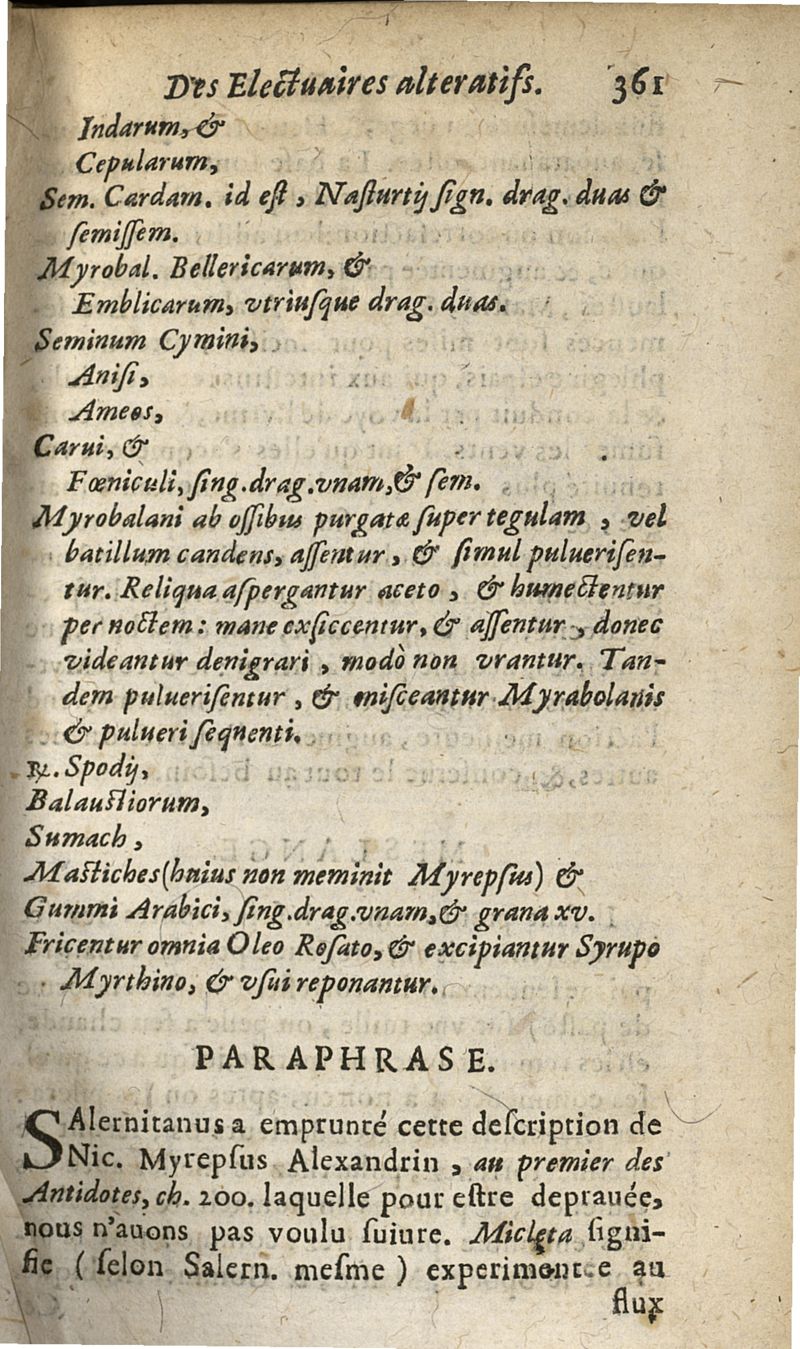 Des Electuaires alteratifs. 361
Indarum, &
Cepularum,
Sem. Cardam. id est, Nasturtij sign. drag. duas &
semissem.
Myrobal. Bellericarum, &
Emblicarum, vtriusque drag. duas.
Seminum Cymini,
Anisi,
Ameos,
Carui, &
Fœniculi, sing. drag. vnam, & sem.
Myrobalani ab ossibus purgatæ super tegulam, vel
batillum candens, assentur, & simul puluerisen-
tur. Reliqua aspergantur aceto, & humectentur
per noctem: mane exsiccentur, & assentur, donec
videantur denigrari, modò non vrantur. Tan-
dem puluerisentur, & misceantur Myrabolanis
& pulueri sequenti.
℞. Spodij,
Balaustiorum,
Sumach,
Mastiches (huius non meminit Myrepsus) &
Gummi Arabici, sing. drag. vnam, & grana xv.
Fricentur omnia Oleo Rosato, & excipiantur Syrupo
Myrthino, & vsui reponantur.
PARAPHRASE.
SAlernitanus a emprunté cette description de
Nic. Myrepsus Alexandrin, au premier des
Antidotes, ch. 200. laquelle pour estre deprauée,
nous n'auons pas voulu suiure. Micleta signi-
fie (selon Salern. mesme) experimentée au
flux